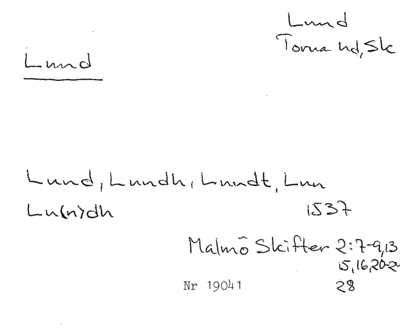 Lund
Torna hd, Sk
Lund
Lund, Lundh, Lundt, Lun
Lu(n)dh 1537
Malmö Skifter 2:7-9,13
15,16,20-2
Nr 19041 28